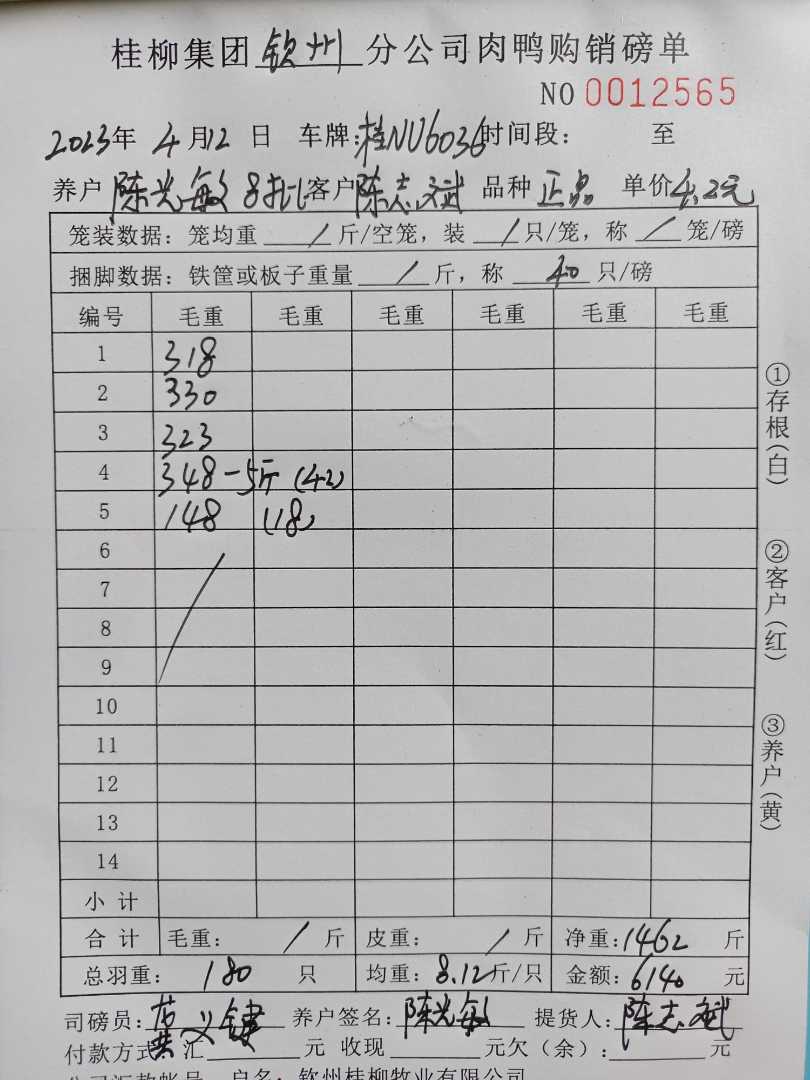 桂柳集团 钦州 分公司肉鸭购销磅单
NO 0012565
2023年 4月12日 车牌:桂NU6036 时间段: 至
养户 陈光敏 8批 客户 陈志斌 品种 正品 单价 4.2元
笼装数据: 笼均重 / 斤/空笼, 装 / 只/笼, 称 / 笼/磅
捆脚数据: 铁筐或板子重量 / 斤, 称 40 只/磅
编号 毛重 毛重 毛重 毛重 毛重 毛重
1 318
2 330
3 323
4 348-5斤 (42)
5 148 (18)
6
7
8
9
10
11
12
13
14
小计
合计 毛重: / 斤 皮重: / 斤 净重: 1462 斤
总羽重: 180 只 均重: 8.12 斤/只 金额: 6140 元
司磅员: 黄义键 养户签名: 陈光敏 提货人: 陈志斌
付款方式 汇 元 收现 元欠(余): 元
公司汇款帐号 户名: 钦州桂柳牧业有限公司
①存根(白)
②客户(红)
③养户(黄)